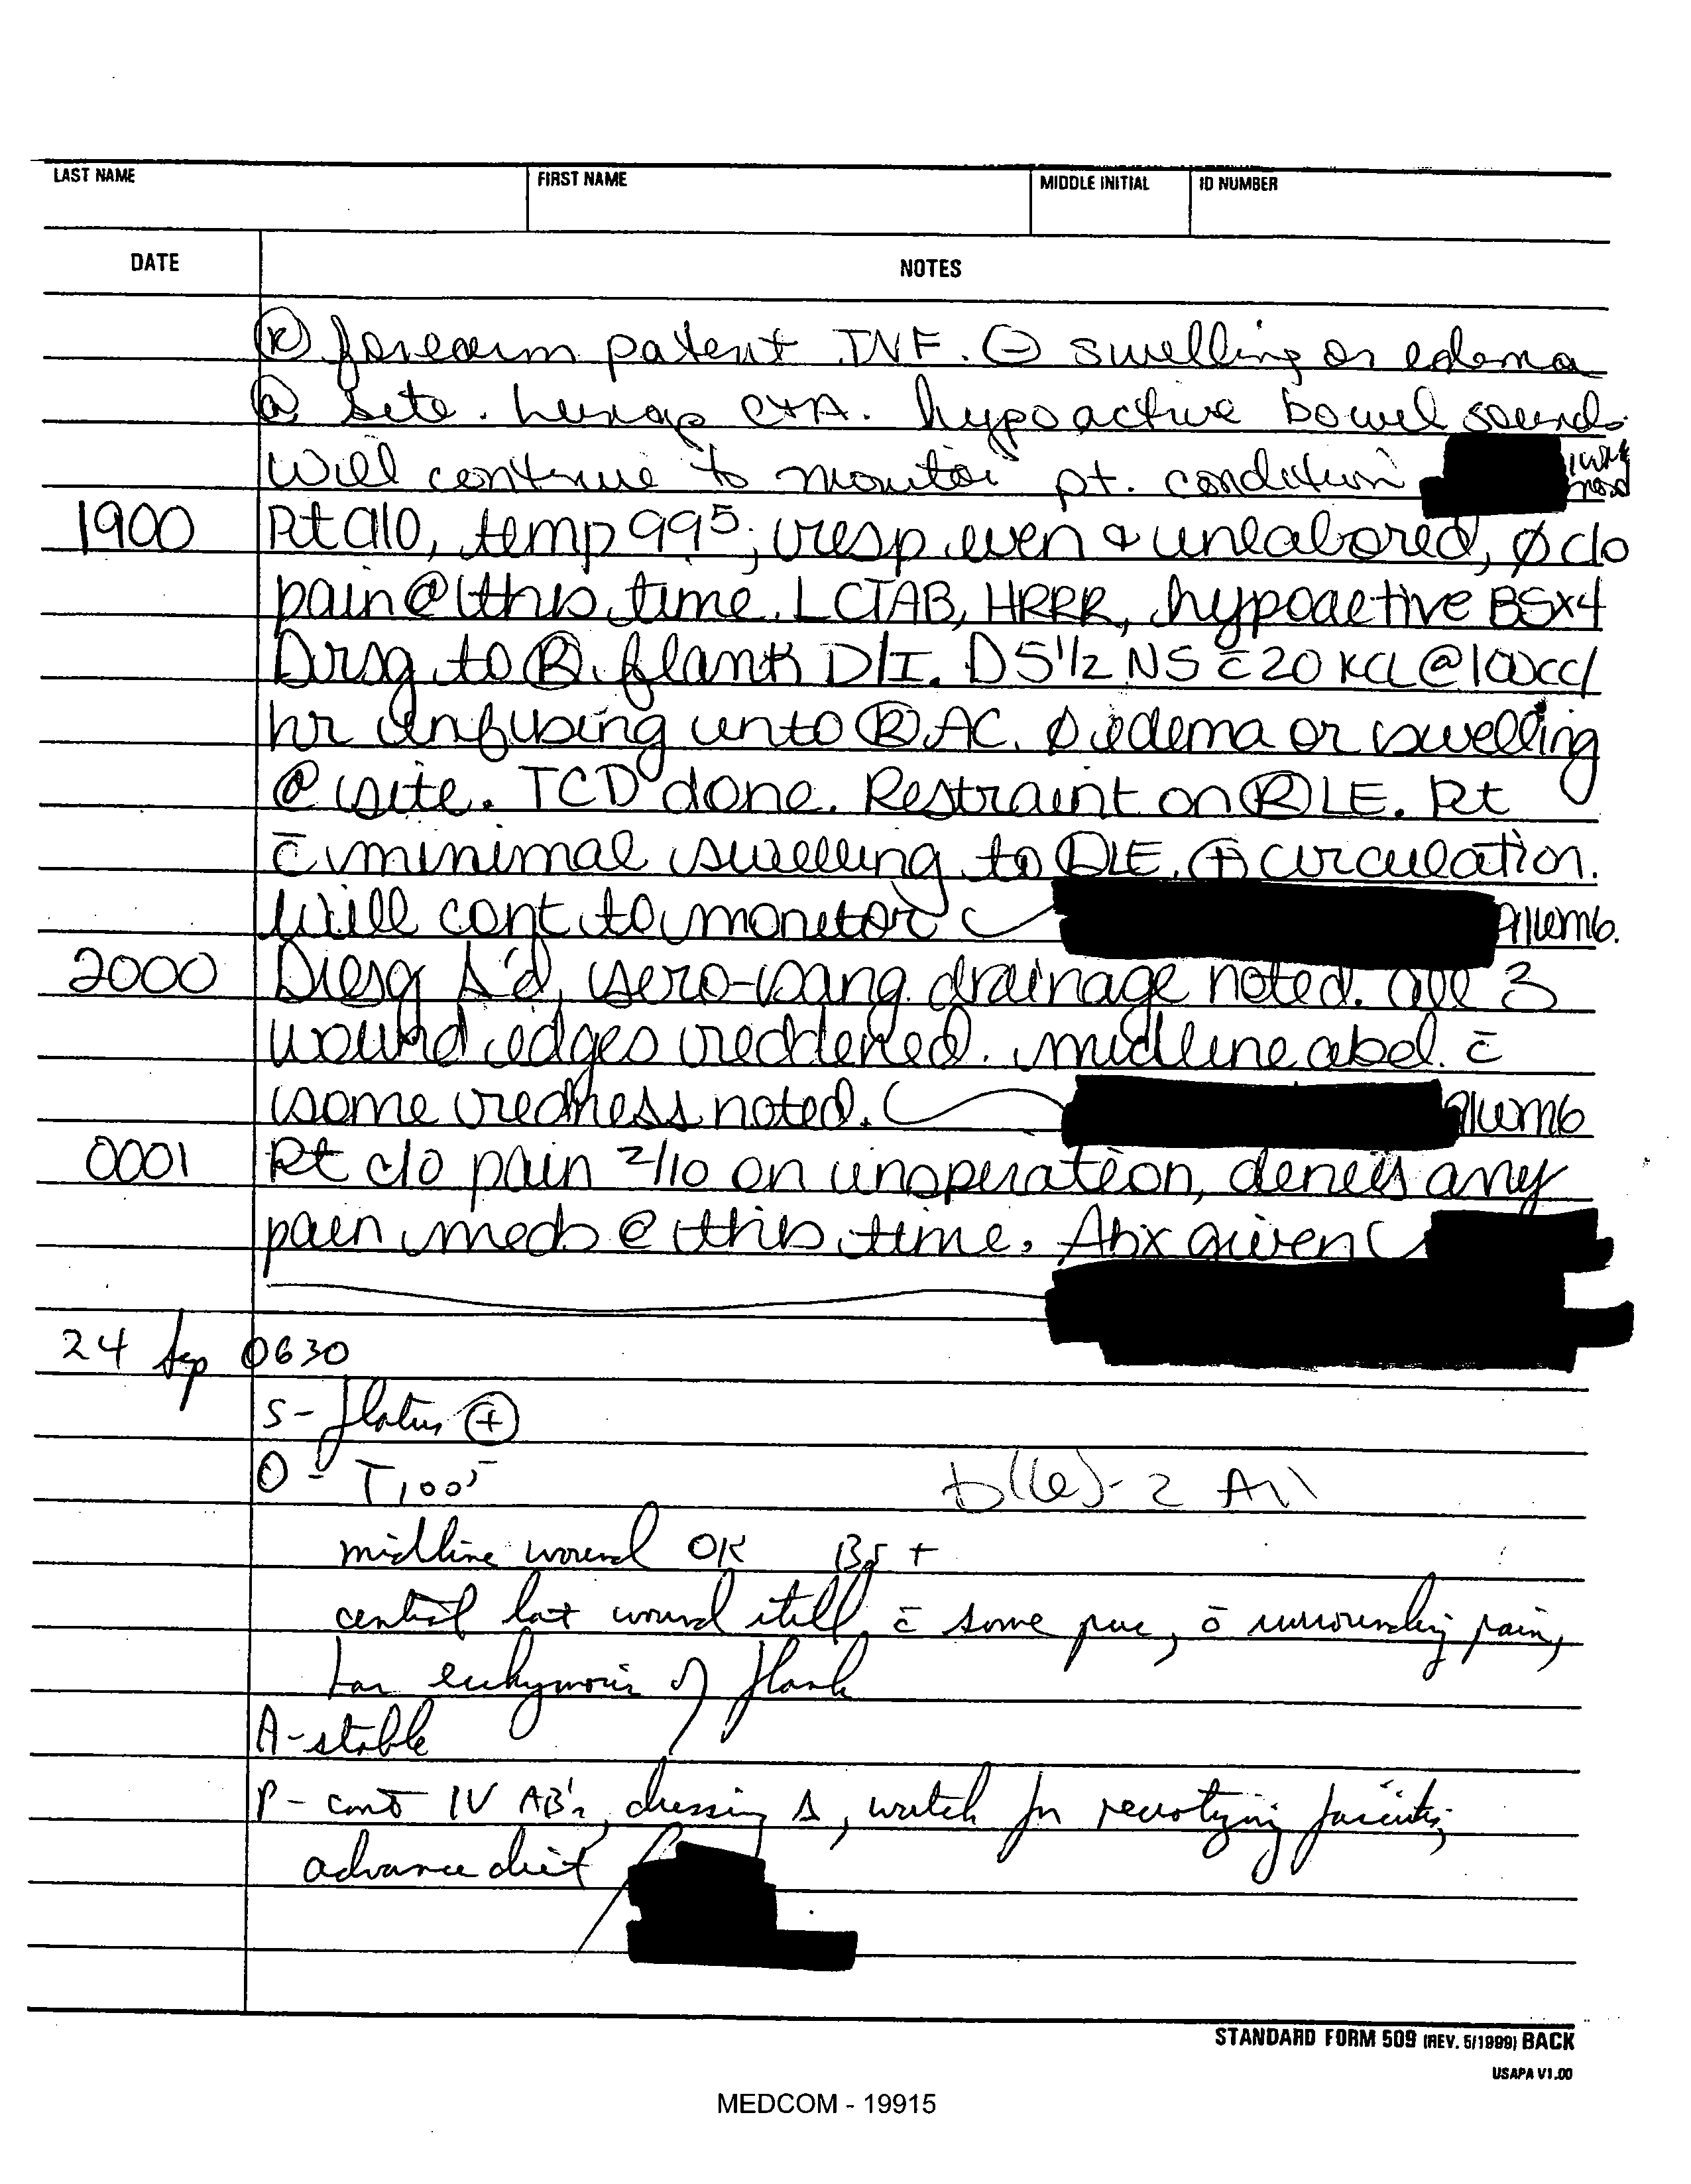 LAST NAME FIRST NAME MIDDLE INITIAL ID NUMBER
DATE NOTES
Ⓡ forearm patent INF. ⊖ swelling or edema
@ site. lungs CTA. hypoactive bowel sounds
will continue to monitor pt. condition
1900 Pt a/o, temp 99⁵, resp even & unlabored, ø c/o
pain @ this time. LCTAB, HRRR, hypoactive BSx4
Drsg to Ⓡ flank D/I. D5 1/2 NS c̄ 20 KCL @ 100cc/
hr infusing into Ⓡ AC. ø edema or swelling
@ site. TCD done. Restraint on Ⓡ LE. Pt
c̄ minimal swelling to LE. ⊕ circulation.
Will cont to monitor 91WM6.
2000 Dresg Δ'd, sero-sang drainage noted. all 3
wound edges reddened. midline abd. c̄
some redness noted. 91WM6
0001 Pt c/o pain 2/10 on inspiration, denies any
pain meds @ this time. Abx given
24 Sep 0630
S- flatus ⊕
O - T 100⁵
b(6)-2 All
midline wound OK BS +
central lat wound still c̄ some pus, ō surrounding pain,
has ecchymosis of flank
A-stable
P- cont IV AB's, dressing Δ, watch for necrotizing fasciitis,
advance diet
STANDARD FORM 509 (REV. 5/1999) BACK
USAPA V1.00
MEDCOM - 19915